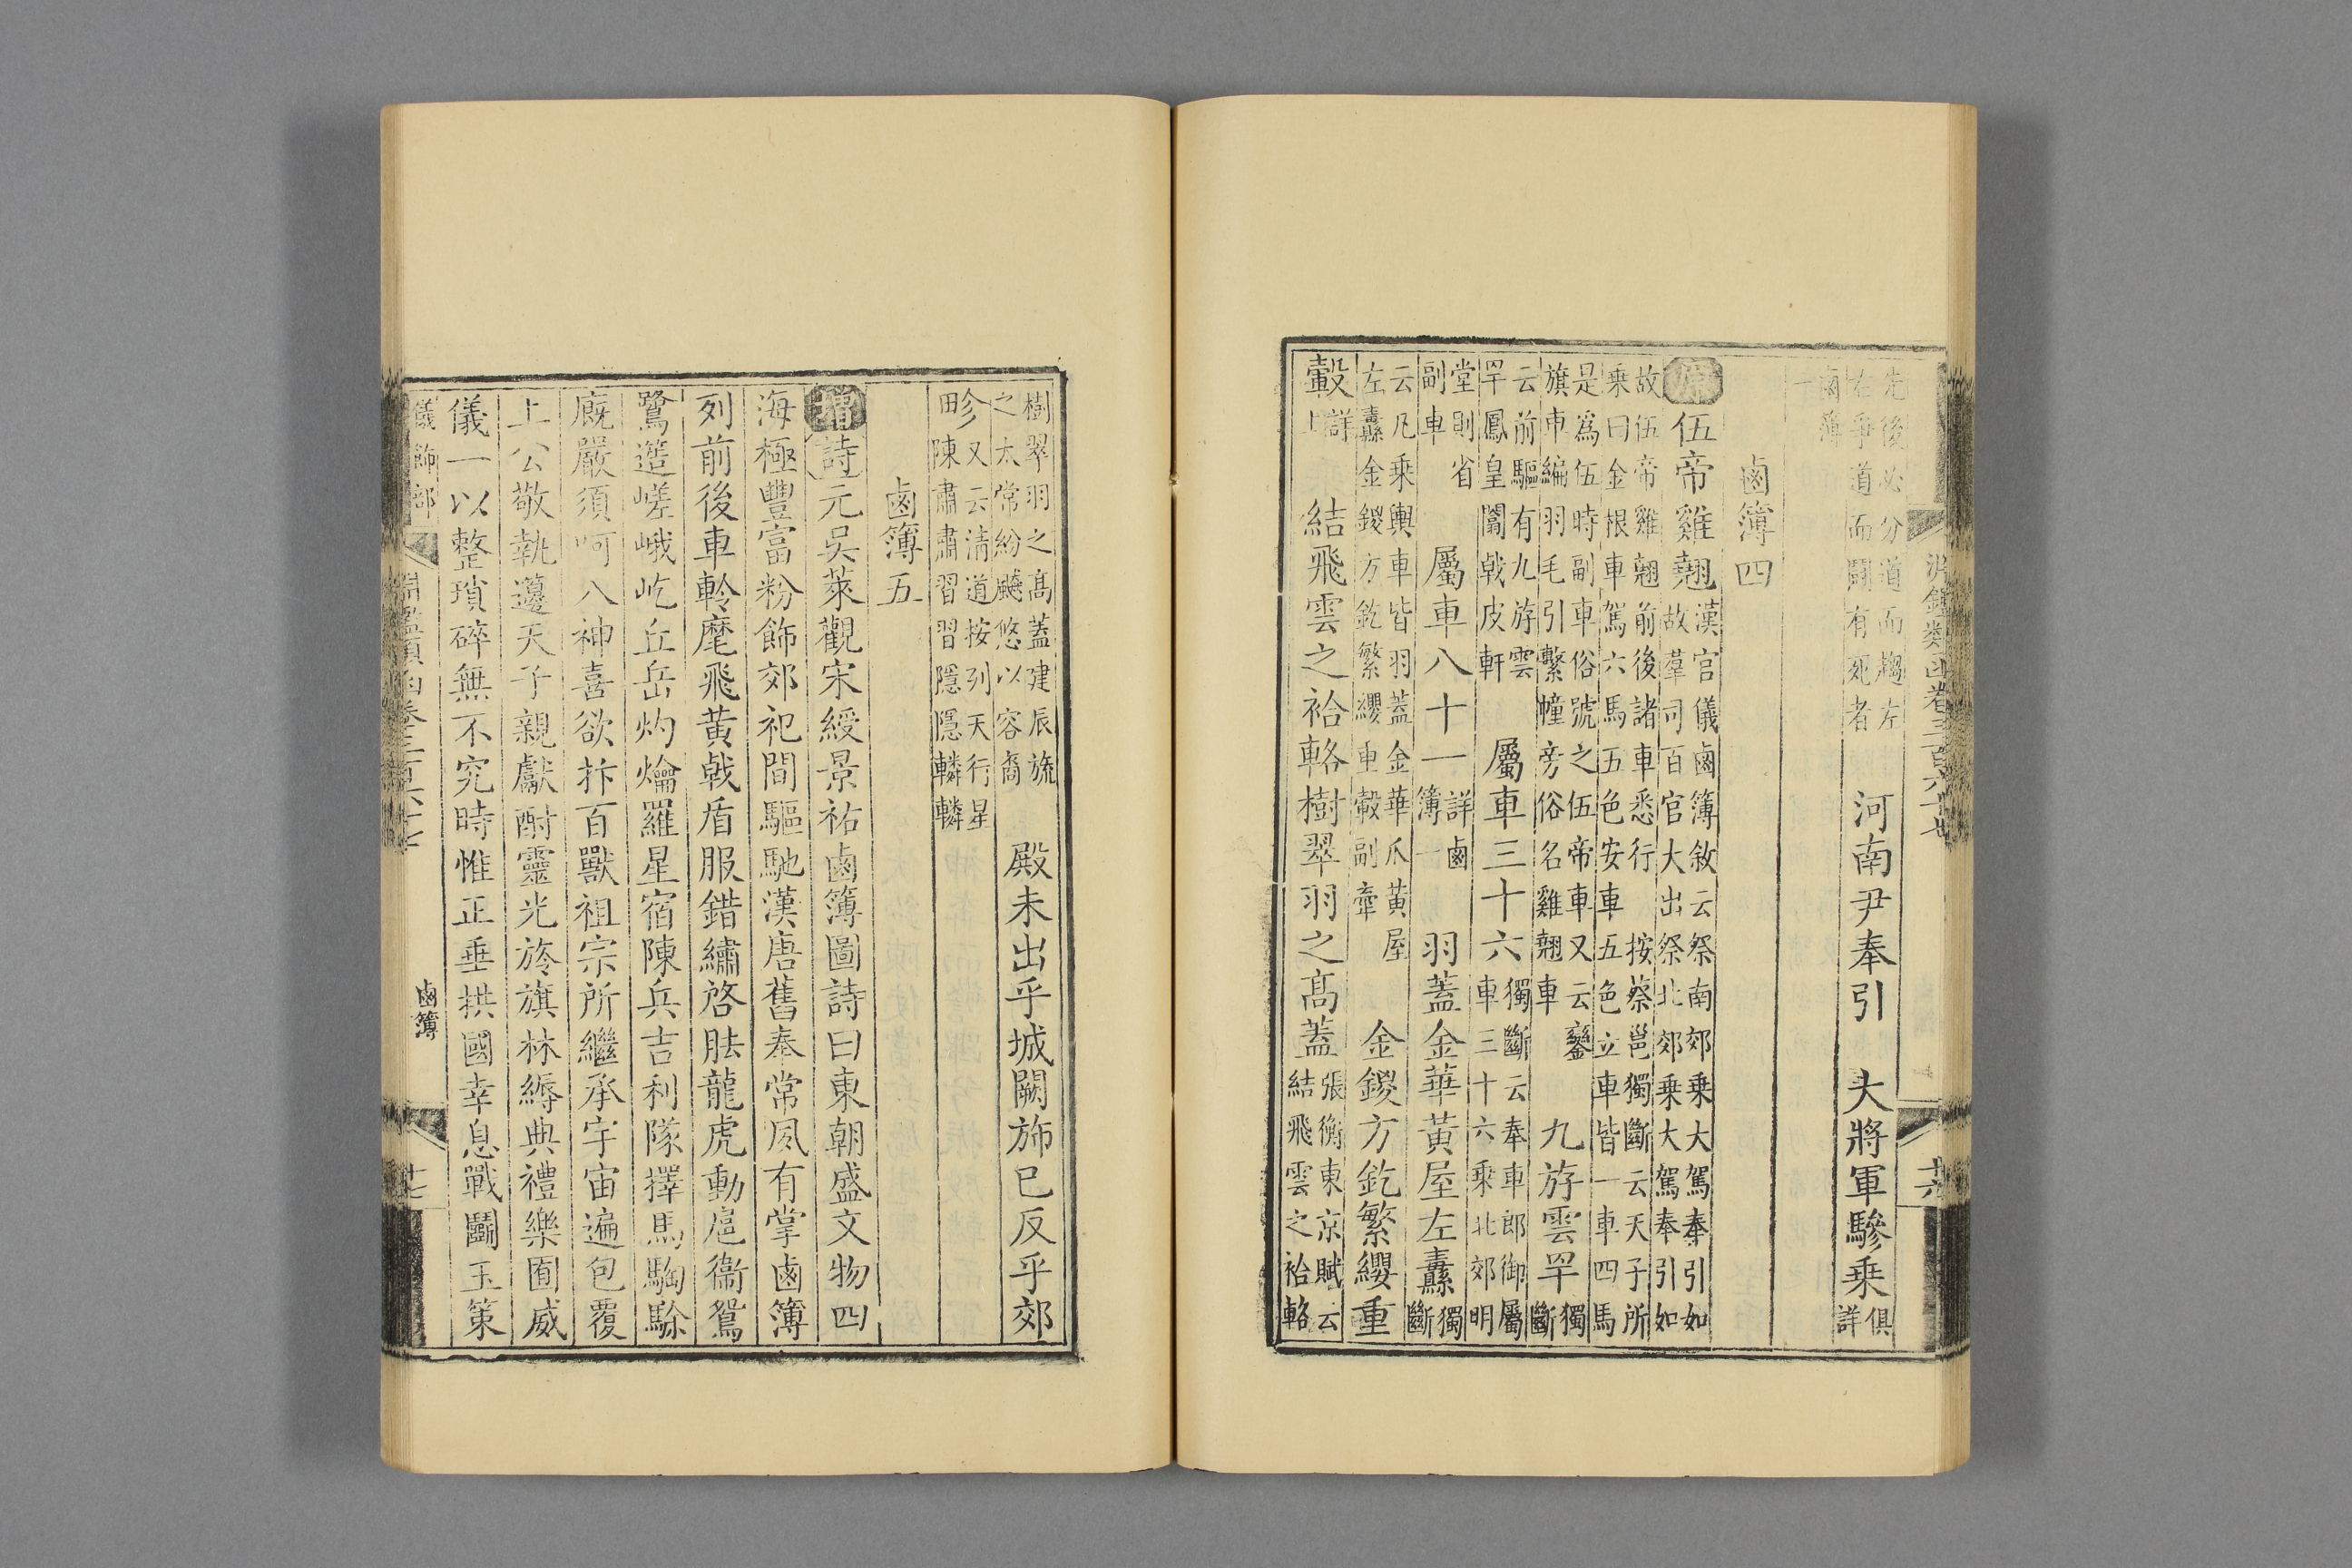 淵鑑類函卷三百六十七 十六
先後必分道而趨左
右爭道而鬭有死者
河南尹奉引 大將軍驂乗 俱
詳
鹵簿
一
鹵簿四
原 伍帝雞翹 漢官儀鹵簿敘云祭南郊乗大駕奉引如
故羣司百官大出祭北郊乗大駕奉引如
故伍帝雞翹前後諸車悉行 按蔡邕獨斷云天子所
乗曰金根車駕六馬五色安車五色立車皆一車四馬
是爲伍時副車俗號之伍帝車又云鑾
旗車編羽毛引繫幢旁俗名雞翹車
九斿雲罕 獨
斷
云前驅有九斿雲
罕鳳皇闟戟皮軒
屬車三十六 獨斷云奉車郎御屬
車三十六乗北郊明
堂則省
副車
屬車八十一 詳鹵
簿一
羽蓋金華黃屋左纛 獨
斷
云凡乗輿車皆羽蓋金華爪黃屋
左纛金鍐方釳繁纓重轂副牽
金鍐方釳繁纓重
轂 詳
上
結飛雲之袷輅樹翠羽之高蓋 張衡東京賦云
結飛雲之袷輅
樹翠羽之高蓋建辰旒
之太常紛飈悠以容裔
殿未出乎城闕斾已反乎郊
畛 又云清道按列天行星
陳肅肅習習隱隱轔轔
鹵簿五
增 詩 元吳萊觀宋綬景祐鹵簿圖詩曰東朝盛文物四
海極豐富粉飾郊祀間驅馳漢唐舊奉常夙有掌鹵簿
列前後車軨麾飛黃戟盾服錯繡啓胠龍虎動扈衞鴛
鷺造嵯峨屹丘岳灼爚羅星宿陳兵吉利隊擇馬騊駼
廐嚴須呵八神喜欲抃百獸祖宗所繼承宇宙遍包覆
上公敬執籩天子親獻酎靈光旍旗林縟典禮樂囿威
儀一以整瑣碎無不究時惟正垂拱國幸息戰鬭玉策
儀飾部 淵鑑類函卷三百六十七 鹵簿 十七